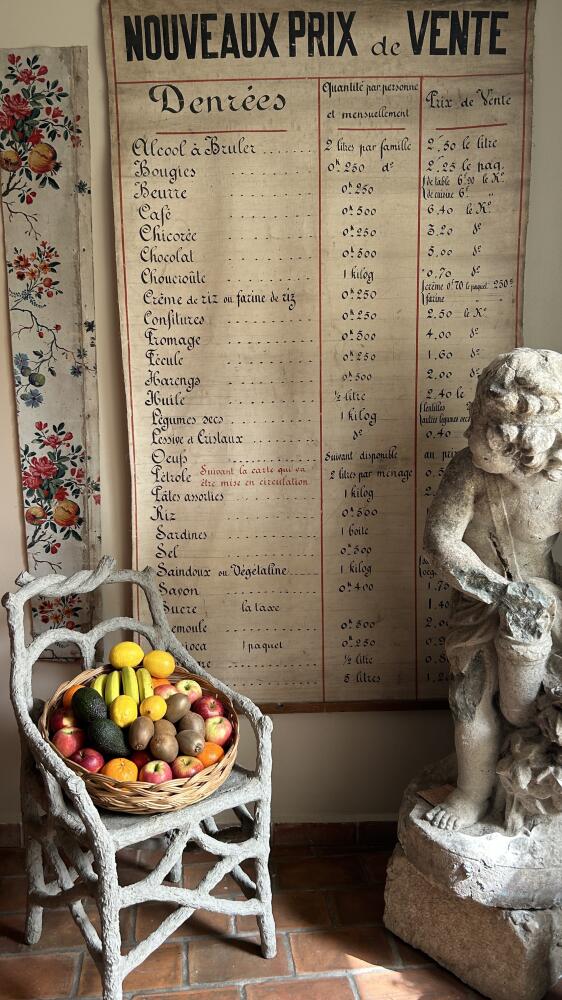 NOUVEAUX PRIX de VENTE
Denrées Quantité par personne et mensuellement Prix de Vente
Alcool à Bruler 2 litres par famille 2f,50 le litre
Bougies 0k250 do 2f,25 le paq.
Beurre 0k250 de table 6f90 le Ko
de cuisine 6f
Café 0k500 6.40 le Ko
Chicorée 0k250 3.20 do
Chocolat 0k500 5.00 do
Choucroûte 1 kilog 0.70 do
Crème de riz ou farine de riz 0k250 crème 0f70 le paquet 250g
farine
Confitures 0k250 2.50 le Ko
Fromage 0k500 4.00 do
Fécule 0k250 1.60 do
Harengs 0k500 2.00 do
Huile ½ litre 2.40 le
Légumes secs 1 kilog lentilles
autres légumes secs
Lessive et Cristaux do 0.40
Oeufs Suivant disponible au
Pétrole Suivant la carte qui va être mise en circulation 2 litres par ménage
Pâtes assorties 1 kilog
Riz 0k500
Sardines 1 boîte
Sel 0k500
Saindoux ou Végétaline 1 kilog
Savon 0k400 1.70
Sucre la taxe 1.40
emoule 0k500
ioca 1 paquet 0k250
re ½ litre
5 litres